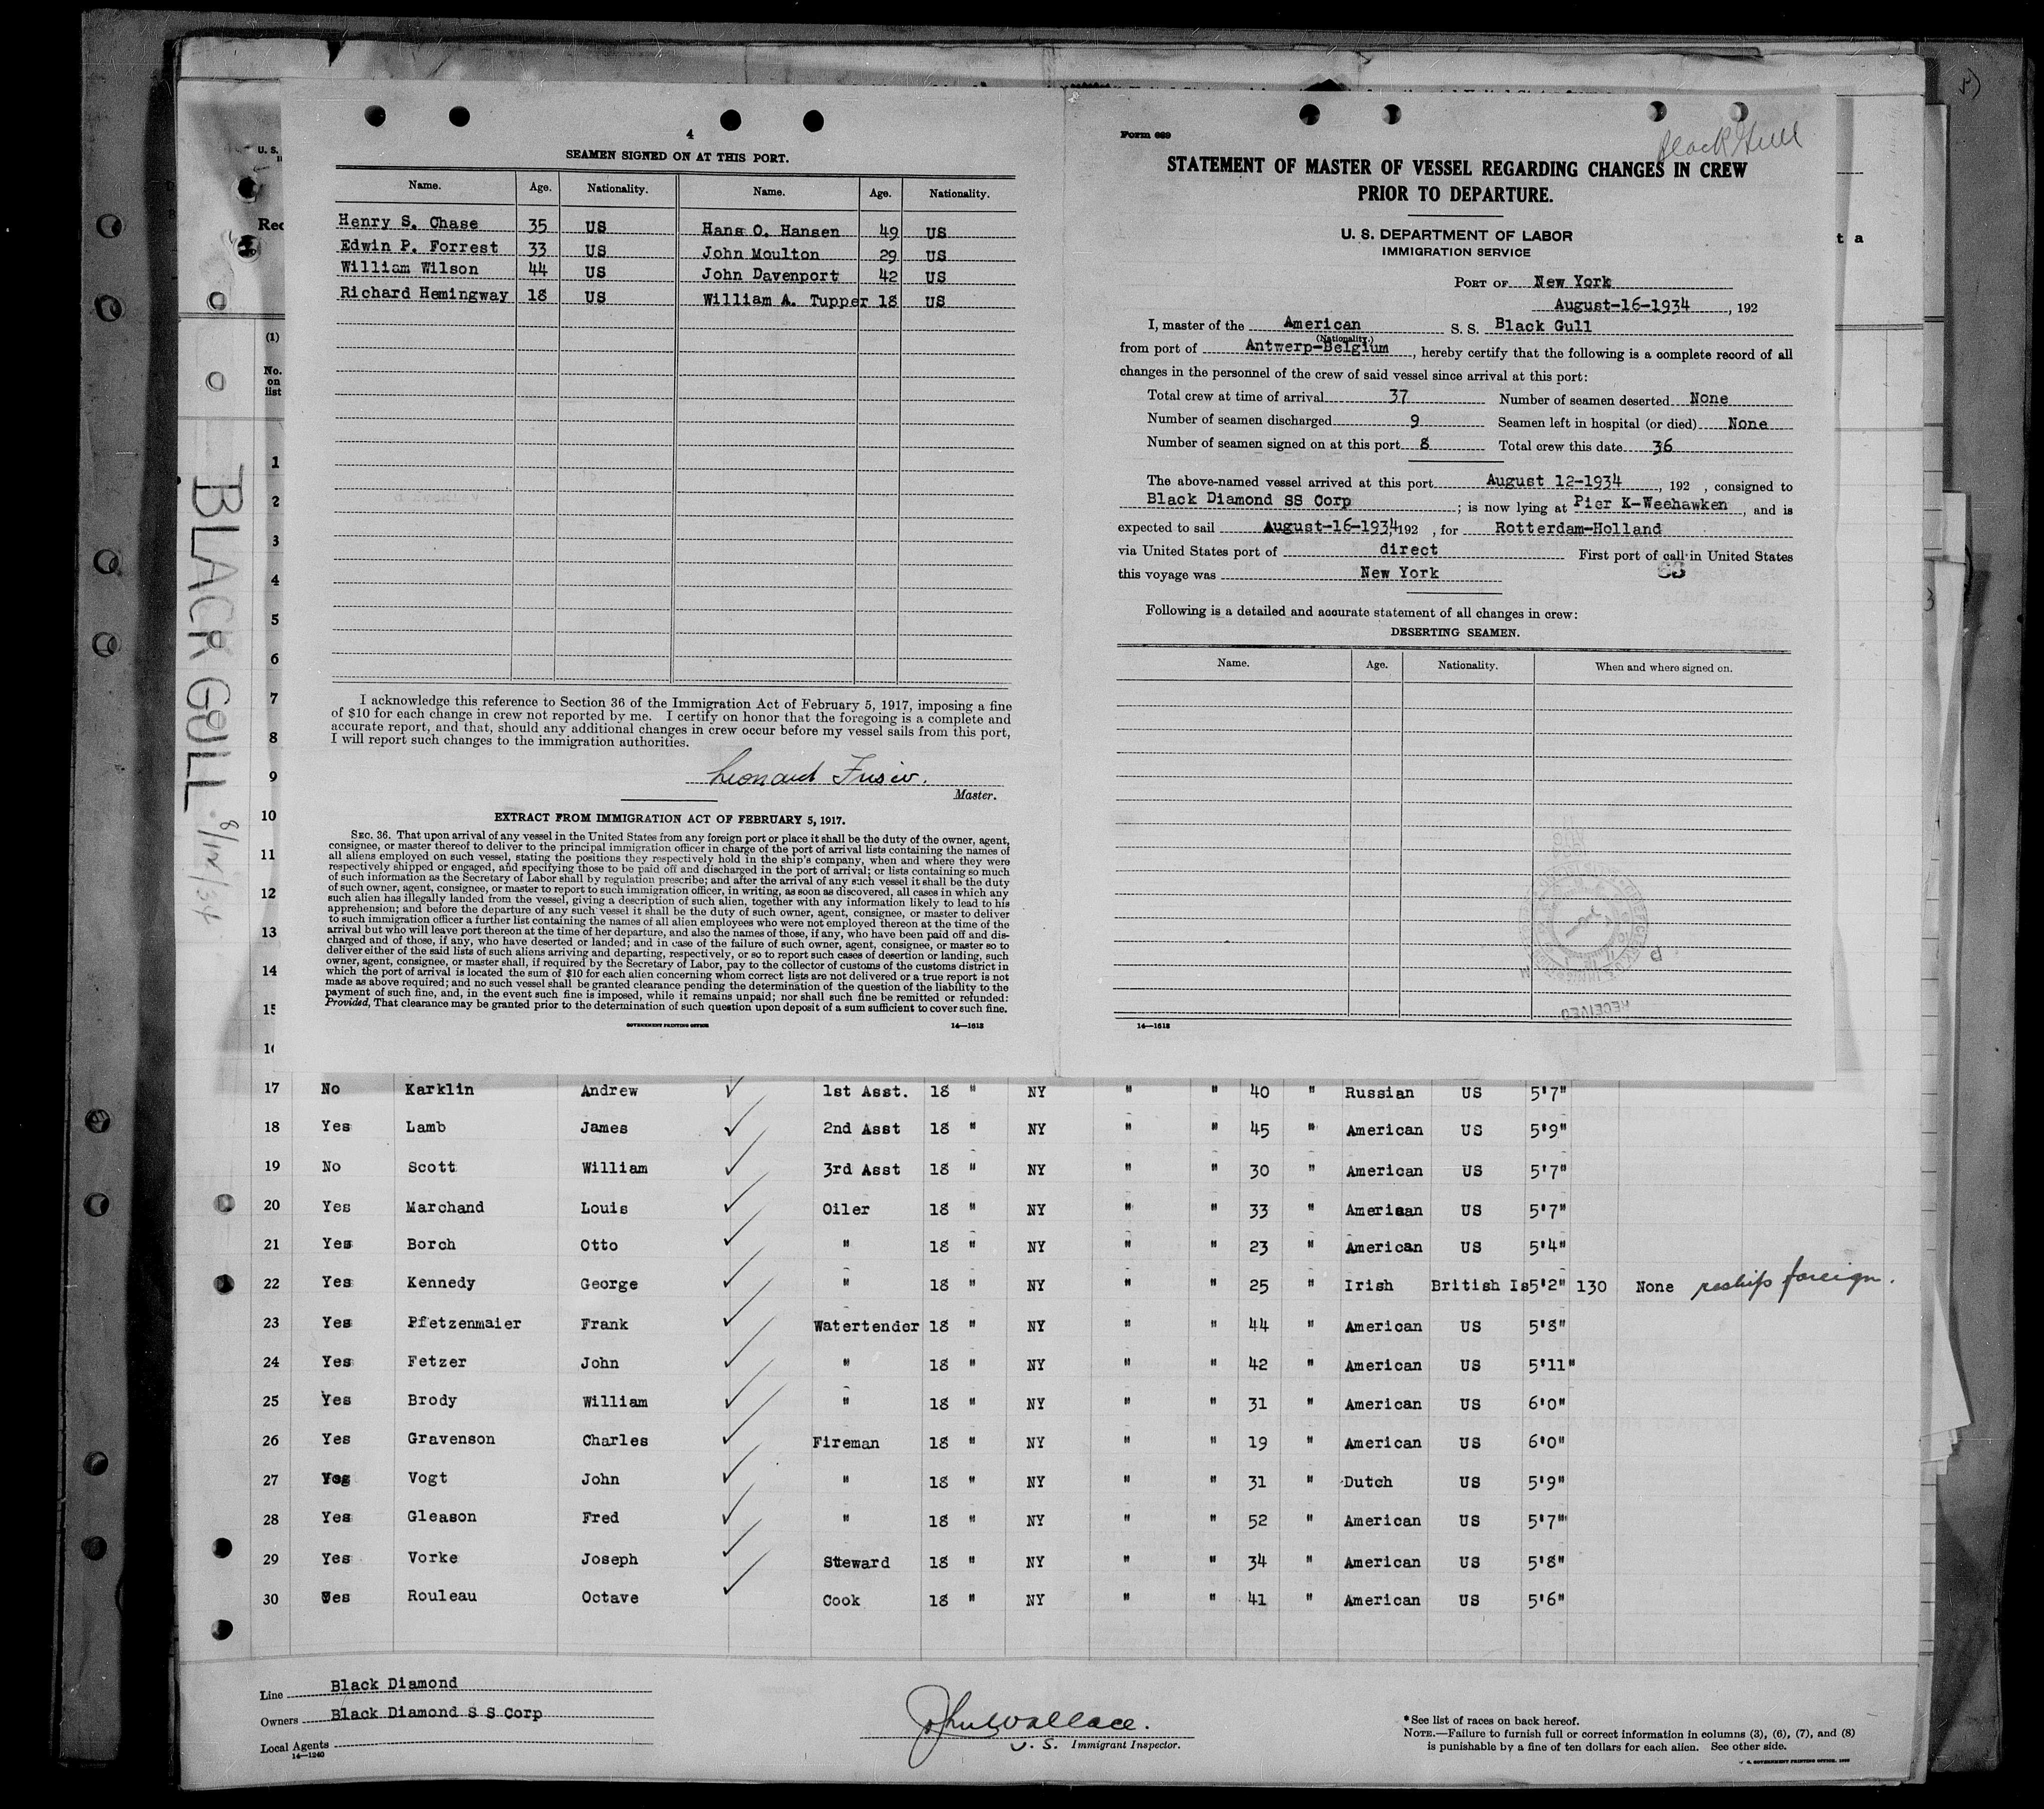 4
SEAMEN SIGNED ON AT THIS PORT.
Name. Age. Nationality. Name. Age. Nationality.
Henry S. Chase 35 US Hans O. Hansen 49 US
Edwin P. Forrest 33 US John Moulton 29 US
William Wilson 44 US John Davenport 42 US
Richard Hemingway 18 US William A. Tupper 18 US
I acknowledge this reference to Section 36 of the Immigration Act of February 5, 1917, imposing a fine
of $10 for each change in crew not reported by me. I certify on honor that the foregoing is a complete and
accurate report, and that, should any additional changes in crew occur before my vessel sails from this port,
I will report such changes to the immigration authorities.
Leonard
Master.
EXTRACT FROM IMMIGRATION ACT OF FEBRUARY 5, 1917.
SEC. 36. That upon arrival of any vessel in the United States from any foreign port or place it shall be the duty of the owner, agent,
consignee, or master thereof to deliver to the principal immigration officer in charge of the port of arrival lists containing the names of
all aliens employed on such vessel, stating the positions they respectively hold in the ship's company, when and where they were
respectively shipped or engaged, and specifying those to be paid off and discharged in the port of arrival; or lists containing so much
of such information as the Secretary of Labor shall by regulation prescribe; and after the arrival of any such vessel it shall be the duty
of such owner, agent, consignee, or master to report to such immigration officer, in writing, as soon as discovered, all cases in which any
such alien has illegally landed from the vessel, giving a description of such alien, together with any information likely to lead to his
apprehension; and before the departure of any such vessel it shall be the duty of such owner, agent, consignee, or master to deliver
to such immigration officer a further list containing the names of all alien employees who were not employed thereon at the time of the
arrival but who will leave port thereon at the time of her departure, and also the names of those, if any, who have been paid off and dis-
charged and of those, if any, who have deserted or landed; and in case of the failure of such owner, agent, consignee, or master so to
deliver either of the said lists of such aliens arriving and departing, respectively, or so to report such cases of desertion or landing, such
owner, agent, consignee, or master shall, if required by the Secretary of Labor, pay to the collector of customs of the customs district in
which the port of arrival is located the sum of $10 for each alien concerning whom correct lists are not delivered or a true report is not
made as above required; and no such vessel shall be granted clearance pending the determination of the question of the liability to the
payment of such fine, and, in the event such fine is imposed, while it remains unpaid; nor shall such fine be remitted or refunded:
Provided, That clearance may be granted prior to the determination of such question upon deposit of a sum sufficient to cover such fine.
GOVERNMENT PRINTING OFFICE 14—1613
Form 689
Black Gull
STATEMENT OF MASTER OF VESSEL REGARDING CHANGES IN CREW
PRIOR TO DEPARTURE.
U. S. DEPARTMENT OF LABOR
IMMIGRATION SERVICE
PORT OF New York
August-16-1934, 192
I, master of the American S. S. Black Gull
(Nationality.)
from port of Antwerp-Belgium, hereby certify that the following is a complete record of all
changes in the personnel of the crew of said vessel since arrival at this port:
Total crew at time of arrival 37 Number of seamen deserted None
Number of seamen discharged 9 Seamen left in hospital (or died) None
Number of seamen signed on at this port 8 Total crew this date 36
The above-named vessel arrived at this port August 12-1934, 192 , consigned to
Black Diamond SS Corp ; is now lying at Pier K-Weehawken, and is
expected to sail August-16-1934, 192 , for Rotterdam-Holland
via United States port of direct First port of call in United States
this voyage was New York
Following is a detailed and accurate statement of all changes in crew:
DESERTING SEAMEN.
Name. Age. Nationality. When and where signed on.
RECEIVED
14—1613
U. S.
Rec
t a
(1)
No.
on
list
BLACK GULL
1
2
3
4
5
6
7
8
9
10
11
12
13
14
15
17 No Karklin Andrew 1st Asst. 18 " NY " " 40 " Russian US 5'7"
18 Yes Lamb James 2nd Asst 18 " NY " " 45 " American US 5'9"
19 No Scott William 3rd Asst 18 " NY " " 30 " American US 5'7"
20 Yes Marchand Louis Oiler 18 " NY " " 33 " American US 5'7"
21 Yes Borch Otto " 18 " NY " " 23 " American US 5'4"
22 Yes Kennedy George " 18 " NY " " 25 " Irish British Is 5'2" 130 None reships foreign.
23 Yes Pfetzenmaier Frank Watertender 18 " NY " " 44 " American US 5'8"
24 Yes Fetzer John " 18 " NY " " 42 " American US 5'11"
25 Yes Brody William " 18 " NY " " 31 " American US 6'0"
26 Yes Gravenson Charles Fireman 18 " NY " " 19 " American US 6'0"
27 Yes Vogt John " 18 " NY " " 31 " Dutch US 5'9"
28 Yes Gleason Fred " 18 " NY " " 52 " American US 5'7"
29 Yes Vorke Joseph Steward 18 " NY " " 34 " American US 5'8"
30 Yes Rouleau Octave Cook 18 " NY " " 41 " American US 5'6"
Line Black Diamond
Owners Black Diamond S S Corp
Local Agents
14—1240
John Wallace.
U. S. Immigrant Inspector.
*See list of races on back hereof.
NOTE.—Failure to furnish full or correct information in columns (3), (6), (7), and (8)
is punishable by a fine of ten dollars for each alien. See other side.